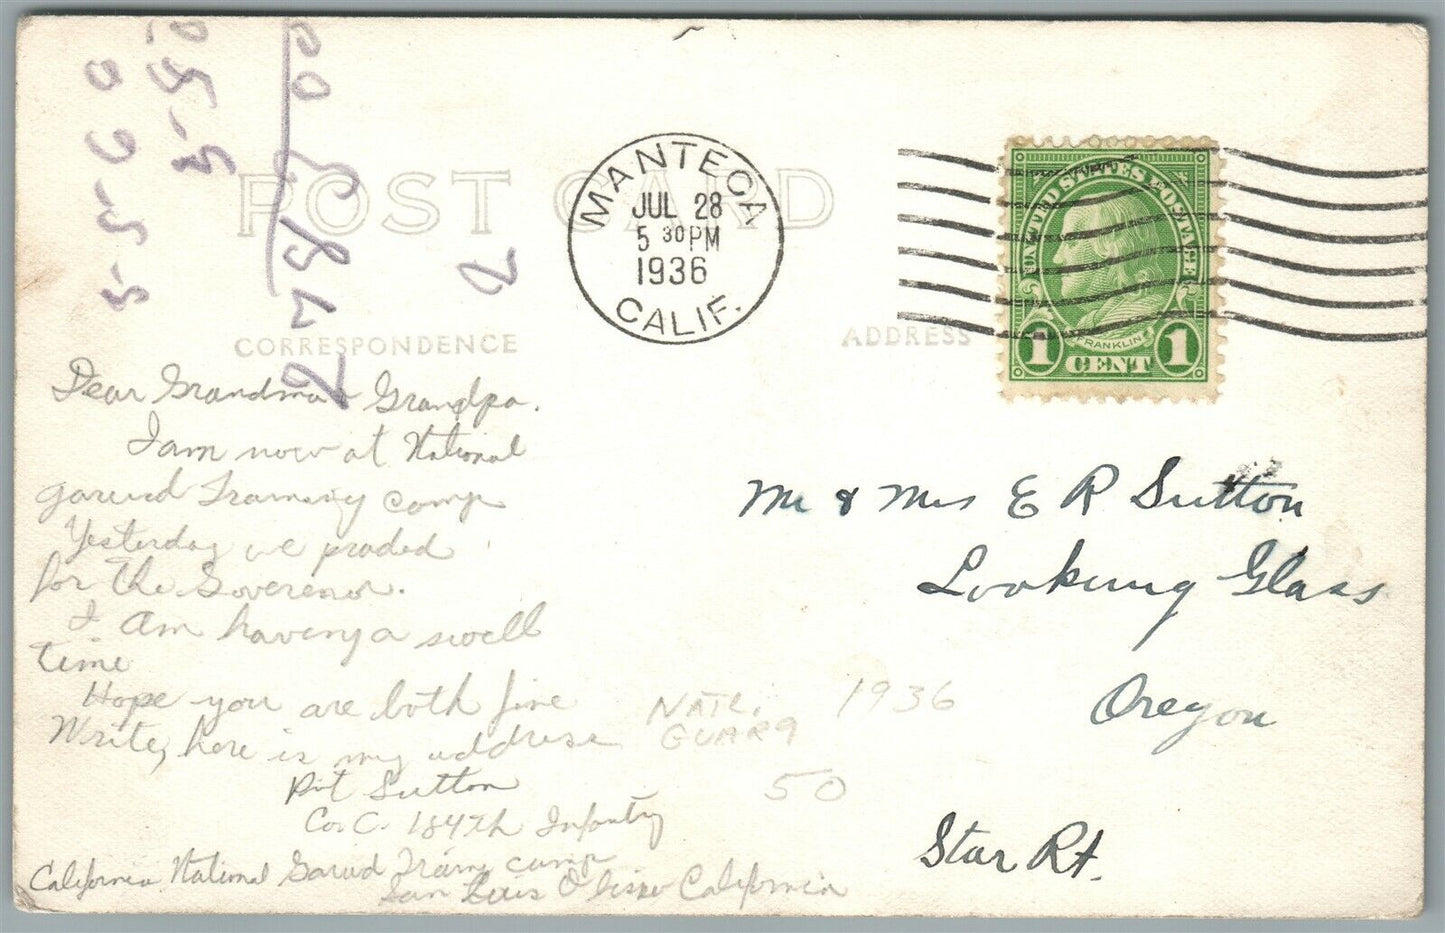 POST CARD
CORRESPONDENCE
ADDRESS
MANTECA
JUL 28
5 30 PM
1936
CALIF.
UNITED STATES POSTAGE
FRANKLIN
1 CENT 1
Dear Grandma & Grandpa.
I am now at National
garurd Training Camp
Yesterday we praded
for the Goverenor.
I am having a swell
time
Hope you are both fine
Write, here is my address
Pvt Sutton
Co. C. 184th Infantry
California National Garurd Train camp
San Luis Obispo California
Mr & Mrs E R Sutton
Looking Glass
Oregon
Star Rt.
NATL.
GUARD
1936
50